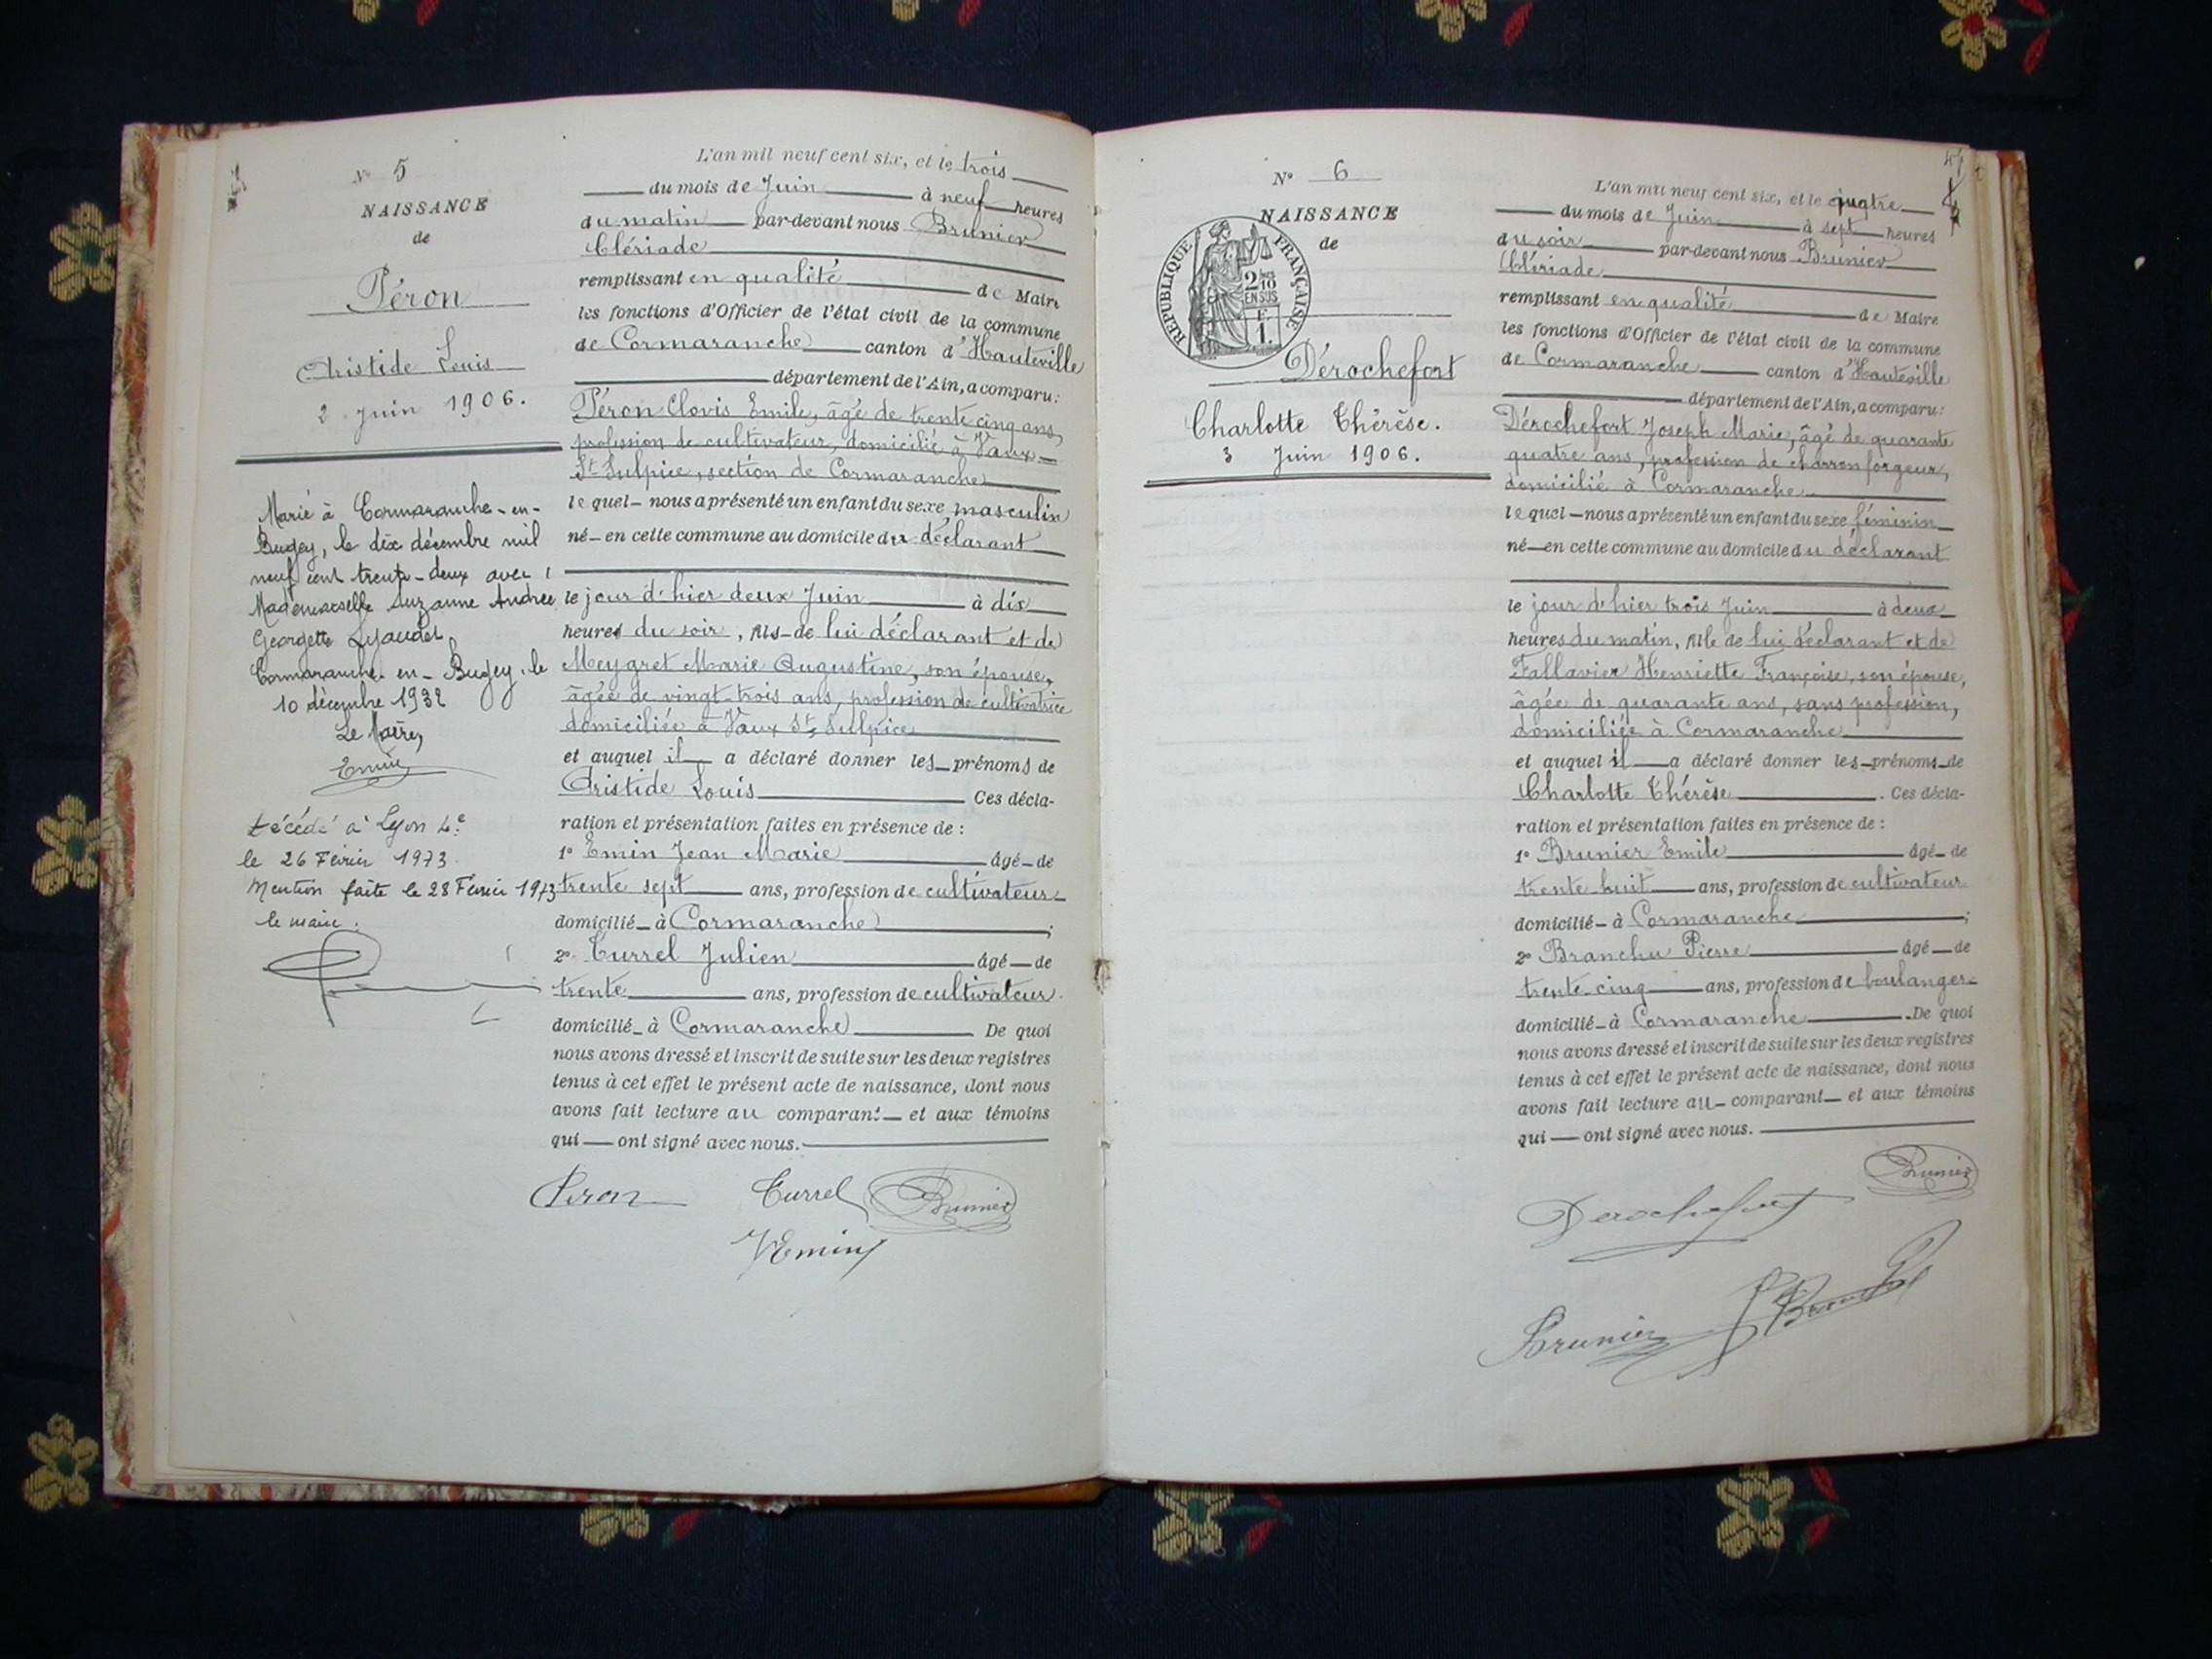 N° 5
NAISSANCE
de
Péron
Aristide Louis
2 Juin 1906.
Marié à Cormaranche-en-
Bugey, le dix décembre mil
neuf cent trente-deux avec
Mademoiselle Suzanne Andrée
Georgette
Cormaranche-en-Bugey, le
10 décembre 1932
Le Maire,
Emin
Décédé à Lyon 4e
le 26 Février 1973.
Mention faite le 28 Février 1973
le maire.
L'an mil neuf cent six, et le trois
du mois de Juin à neuf heures
du matin par-devant nous Brunier
Clériade
remplissant en qualité de Maire
les fonctions d'Officier de l'état civil de la commune
de Cormaranche canton d'Hauteville
département de l'Ain, a comparu:
Péron Clovis Emile, âgé de trente cinq ans,
profession de cultivateur, domicilié à Vaux-
St Sulpice, section de Cormaranche
le quel - nous a présenté un enfant du sexe masculin
né - en cette commune au domicile du déclarant
le jour d'hier deux Juin à dix
heures du soir, fils - de lui déclarant et de
Meygret Marie Augustine, son épouse,
âgée de vingt-trois ans, profession de cultivatrice
domiciliée à Vaux St Sulpice
et auquel il a déclaré donner les prénoms de
Aristide Louis Ces décla-
ration et présentation faites en présence de :
1° Emin Jean Marie âgé - de
trente sept ans, profession de cultivateur
domicilié - à Cormaranche ;
2° Turrel Julien âgé - de
trente ans, profession de cultivateur
domicilié - à Cormaranche De quoi
nous avons dressé et inscrit de suite sur les deux registres
tenus à cet effet le présent acte de naissance, dont nous
avons fait lecture au comparant - et aux témoins
qui - ont signé avec nous.
Péron Turrel Brunier
Emin
N° 6
NAISSANCE
de
REPUBLIQUE FRANÇAISE
2/10
EN SUS
F.
1.
Dérochefort
Charlotte Thérèse.
3 Juin 1906.
L'an mil neuf cent six, et le quatre
du mois de Juin à sept heures
du soir par-devant nous Brunier
Clériade
remplissant en qualité de Maire
les fonctions d'Officier de l'état civil de la commune
de Cormaranche canton d'Hauteville
département de l'Ain, a comparu:
Dérochefort Joseph Marie, âgé de quarante
quatre ans, profession de charron forgeur,
domicilié à Cormaranche
le quel - nous a présenté un enfant du sexe féminin
né - en cette commune au domicile du déclarant
le jour d'hier trois Juin à deux
heures du matin, fille de lui déclarant et de
Fallavier Henriette Françoise, son épouse,
âgée de quarante ans, sans profession,
domiciliée à Cormaranche
et auquel il a déclaré donner les prénoms de
Charlotte Thérèse. Ces décla-
ration et présentation faites en présence de :
1° Brunier Emile âgé - de
trente huit ans, profession de cultivateur
domicilié - à Cormaranche ;
2° Branchu Pierre âgé - de
trente-cinq ans, profession de boulanger
domicilié - à Cormaranche. De quoi
nous avons dressé et inscrit de suite sur les deux registres
tenus à cet effet le présent acte de naissance, dont nous
avons fait lecture au - comparant - et aux témoins
qui - ont signé avec nous.
Brunier
Derochefort
Brunier